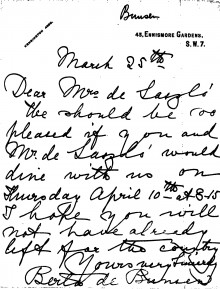 Bunsen
KENSINGTON 4695.
48, ENNISMORE GARDENS,
S.W.7.
March 25th
Dear Mrs de Laszlo
We should be so
pleased if you and
Mr. de Laszlo would
dine with us on
Thursday April 10th at 8.15
I hope you will
not have already
left for the country
Yours very sincerely
Berta de Bunsen